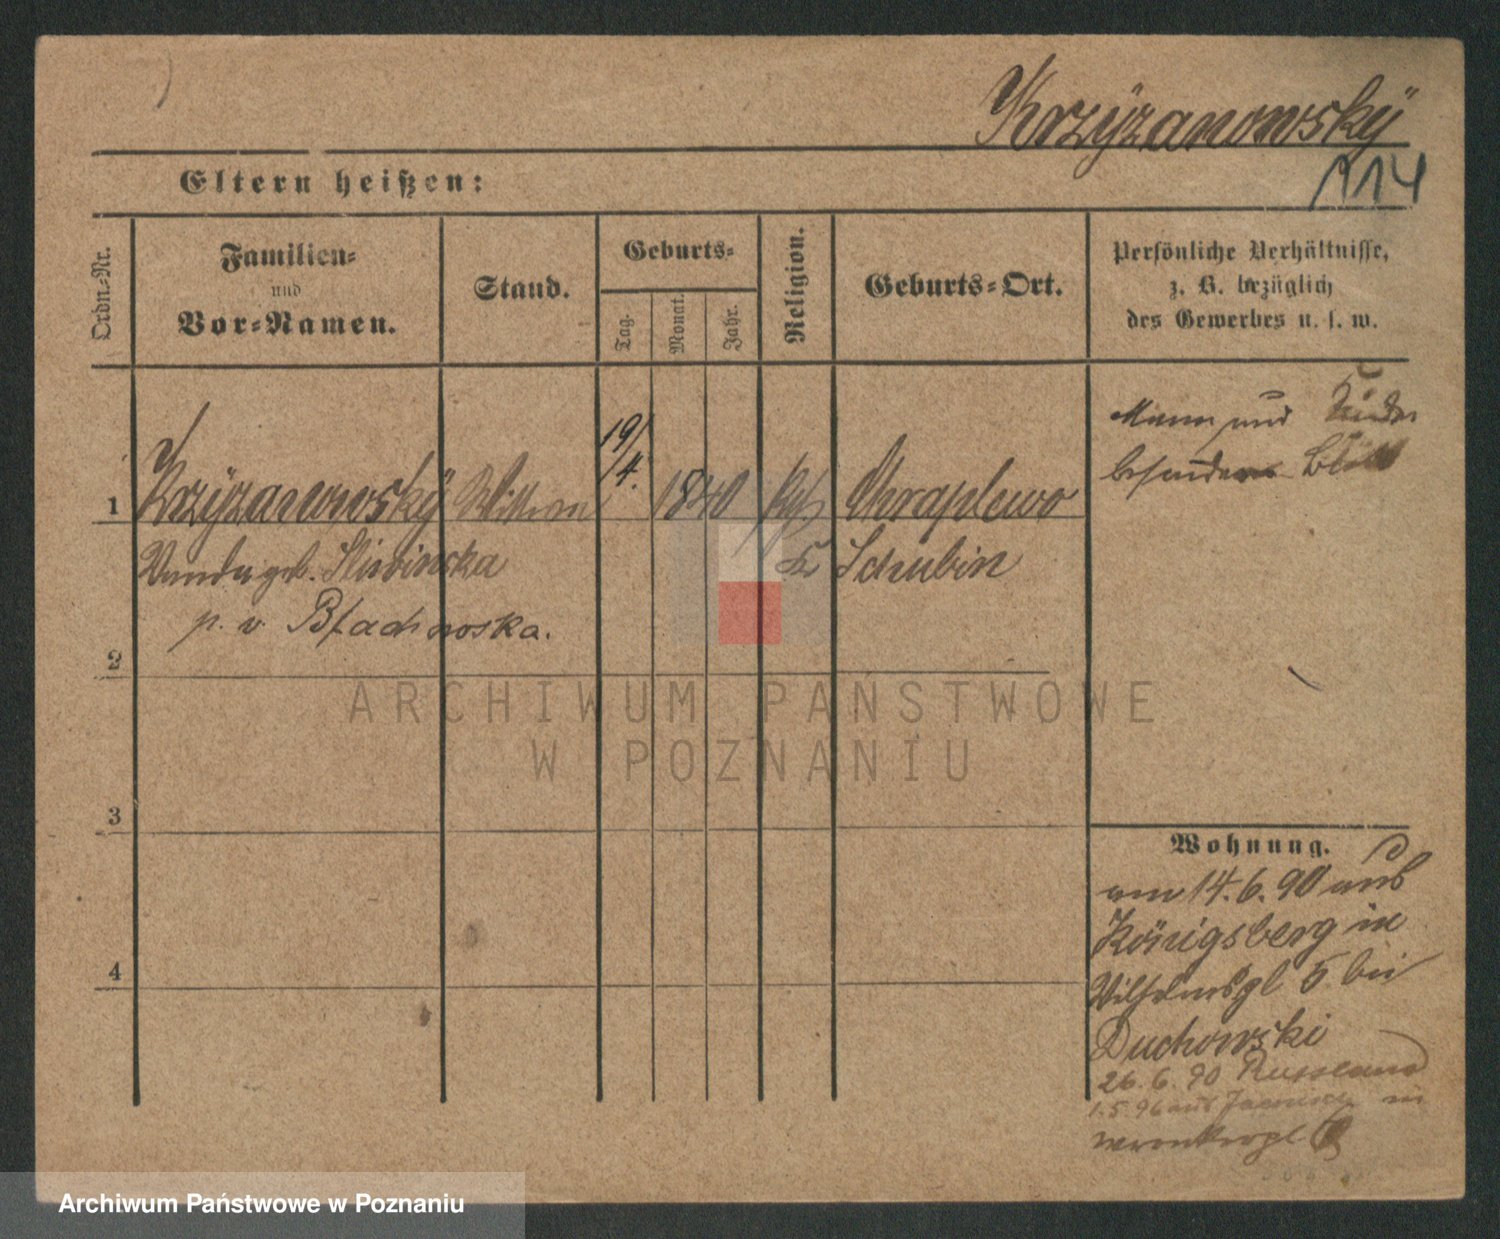 Krzÿzanowskÿ
114
Eltern heißen:
Ordn.-Nr.
Familien-
und
Vor-Namen.
Stand.
Geburts-
Tag.
Monat.
Jahr.
Religion.
Geburts-Ort.
Persönliche Verhältnisse,
z. B. bezüglich
des Gewerbes u. s. w.
Mann und Kinder
besonderes Blatt
19/4.
1 Krzÿzanowskÿ 1840 kth Chraplewo
Wanda geb. Sliwinska Kr Schubin
p. v.
2
3
4
Wohnung.
am 14.6.90 aus
Königsberg in
Wilhelmspl 5 bei
Duchowski
26.6.90 Russland
1.5.96 aus in
ARCHIWUM PAŃSTWOWE
W POZNANIU
Archiwum Państwowe w Poznaniu